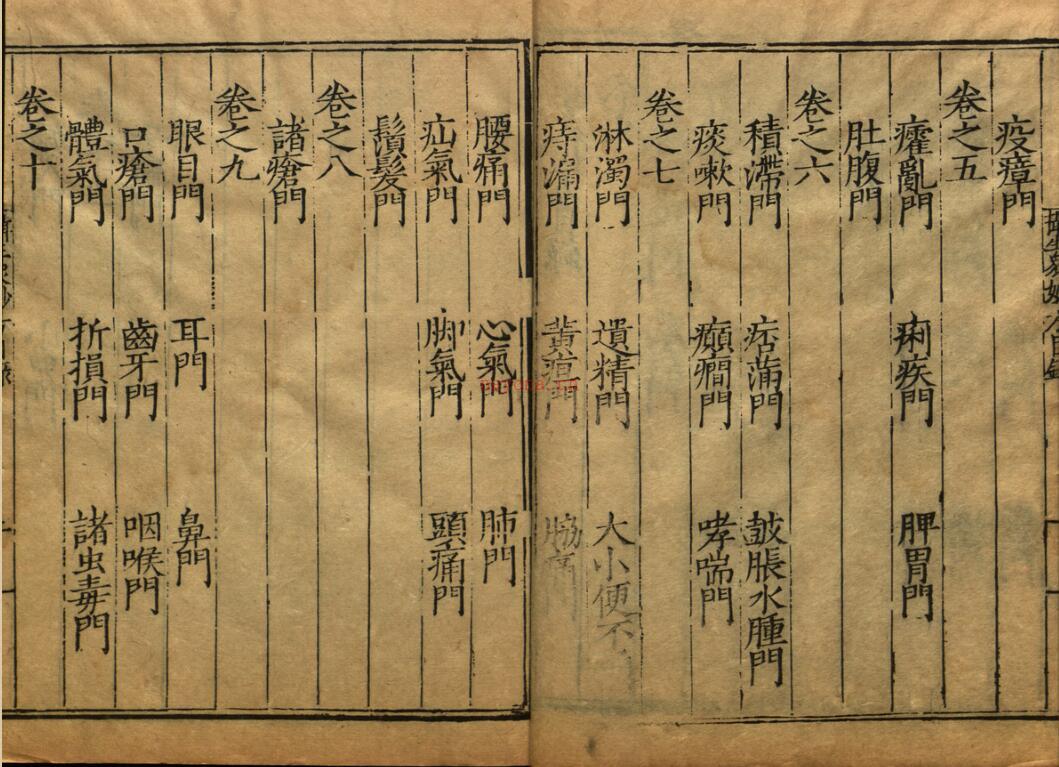 疫瘴門
卷之五
癨亂門 痢疾門 脾胃門
肚腹門
卷之六
積滯門 痞滿門 皷脹水腫門
痰嗽門 癲癇門 哮喘門
卷之七
淋濁門 遺精門 大小便不
痔漏門 黃疸門 脇痛
腰痛門 心氣門 肺門
疝氣門 脚氣門 頭痛門
鬚髮門
卷之八
諸瘡門
卷之九
眼目門 耳門 鼻門
口瘡門 齒牙門 咽喉門
體氣門 折損門 諸虫毒門
卷之十